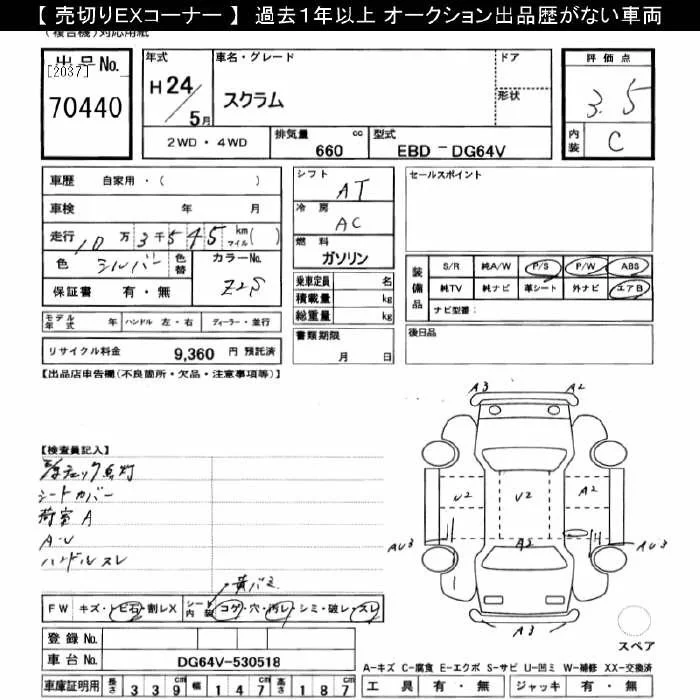 【 売切りEXコーナー 】 過去1年以上 オークション出品歴がない車両
(複合機)対応用紙
出品No.
[2037]
70440
年式
H24/5月
車名・グレード
スクラム
ドア
形状
評価点
3.5
内装
C
2WD・4WD
排気量 660 cc
型式 EBD-DG64V
車歴 自家用・( )
車検 年 月
走行 10万3千545 km マイル( )
色 シルバー
色替
カラーNo. Z2S
保証書 有・無
モデル年式 年 ハンドル 左・右 ディーラー・並行
リサイクル料金 9,360 円 預託済
シフト AT
冷房 AC
燃料 ガソリン
乗車定員 名
積載量 kg
総重量 kg
書類期限
月 日
セールスポイント
装備品
S/R 純A/W P/S P/W ABS
純TV 純ナビ 革シート 外ナビ エアB
ナビ型番:
後日品
【出品店申告欄(不良箇所・欠品・注意事項等)】
【検査員記入】
チェック点灯
シートカバー
荷室 A
A・U
ハンドルスレ
黄バミ
FW キズ・トビ石・割レX
シート内装 コゲ・穴・汚レ・シミ・破レ・スレ
登録No.
車台No. DG64V-530518
車庫証明用 長さ 339 幅 147 高さ 187
A3 A2
U2 U2 A2
AU3 A2 AU3
A3
スペア
A-キズ C-腐食 E-エクボ S-サビ U-凹ミ W-補修 XX-交換済
工具 有・無 ジャッキ 有・無